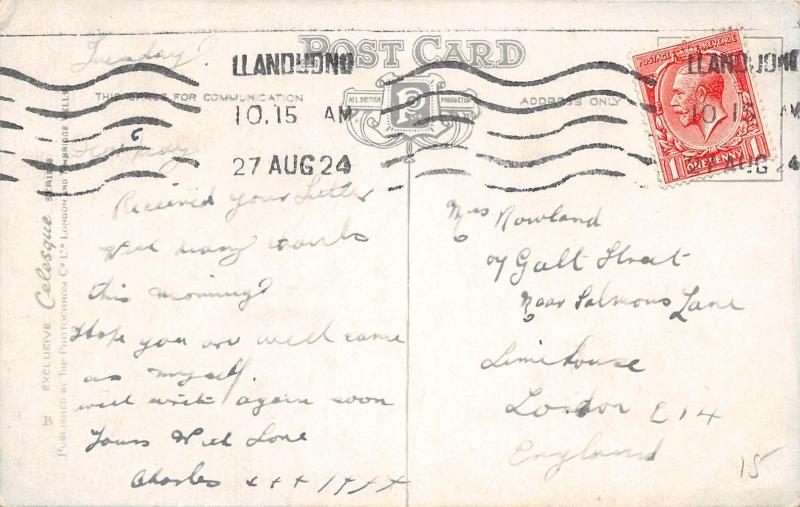 Tuesday
POST CARD
LLANDUDNO
10.15 AM
27 AUG 24
THIS SPACE FOR COMMUNICATION
ALL BRITISH PRODUCTION
ADDRESS ONLY
POSTAGE REVENUE
ONE PENNY
1 1
LLANDUDNO
10 15 AM
AUG 24
Received your Letter
with many thanks
this morning
Hope you are well same
as myself.
will write again soon
Yours With Love
Charles x x x
Mrs Rowland
Galt Street
Near Salmons Lane
Limehouse
London E14
England
15
B EXCLUSIVE Celesque SERIES
PUBLISHED BY THE PHOTOCHROM CO LTD LONDON AND TUNBRIDGE WELLS